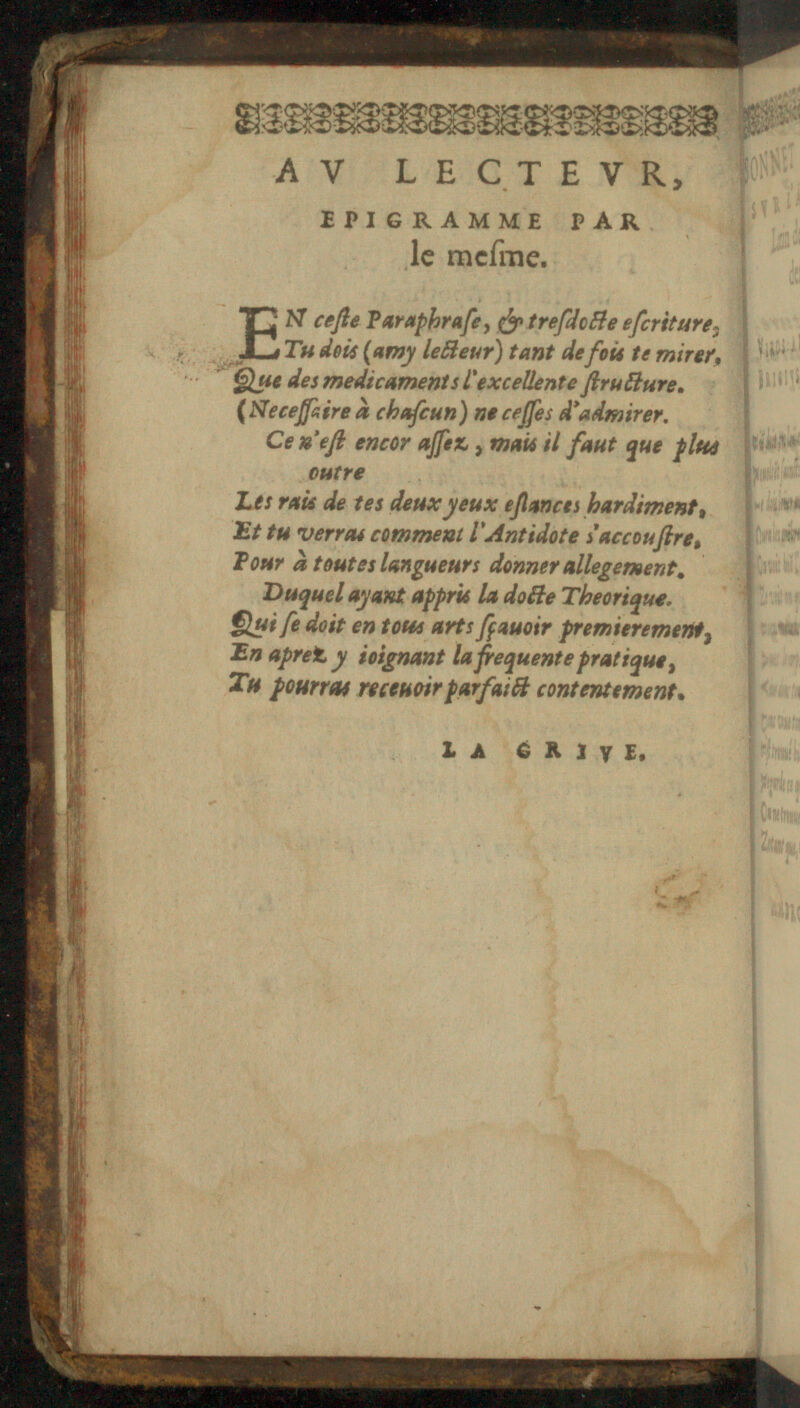 AV LECTEVR,
EPIGRAMME PAR
le meſme.
EN ceſte Paraphraſe, & treſdocte eſcriture,
Tu dois (amy lecteur) tant de fois te mirer,
Que des medicaments l'excellente ſtructure.
(Neceſſaire à chaſcun) ne ceſſes d'admirer.
Ce n'eſt encor aſſez, mais il faut que plus
outre
Les rais de tes deux yeux eſlances hardiment,
Et tu verras comment l'Antidote s'accouſtre,
Pour à toutes langueurs donner allegement.
Duquel ayant appris la docte Theorique.
Qui ſe doit en tous arts ſçauoir premierement,
En aprez y ioignant la frequente pratique,
Tu pourras receuoir parfaict contentement.
LA GRIVE,